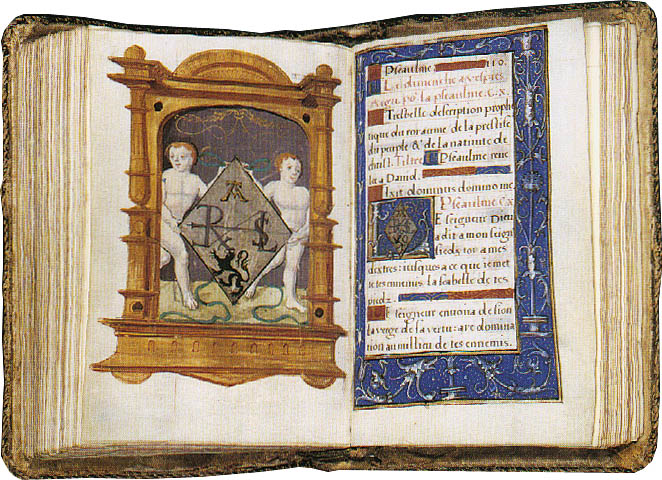 A
R L
Pseaulme 110
Le dimenche a vespres
Augu. po' la pseaulme. C.x.
Tresbelle description prophe
tique du royaume de la prestise
du peuple & de la natiuite de
christ. Tiltre Pseaulme reue
le a Dauid.
Dixit dominus domino me
Pseaulme. C.x
LE seigneur Dieu
a dit a mon seign
sieds toy a mes
dextres: iusques a ce que ie met
te tes ennemis. la scabelle de tes
piedz.
Le seigneur enuoira de sion
la verge de sa vertu: aye domina
tion au millieu de tes ennemis.